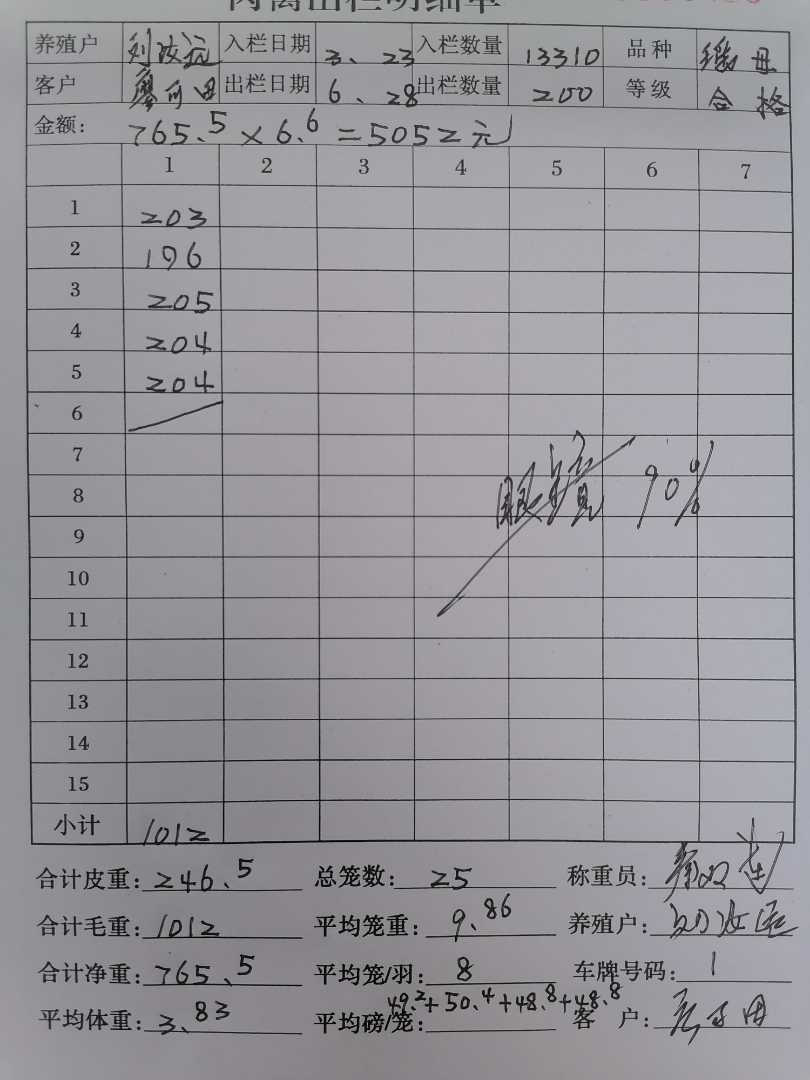 养殖户 刘汝远 入栏日期 3、23 入栏数量 13310 品种 母
客户 廖 出栏日期 6、28 出栏数量 200 等级 合格
金额: 765.5 × 6.6 = 5052元
1 2 3 4 5 6 7
1 203
2 196
3 205
4 204
5 204
6
7
8 眼镜 90%
9
10
11
12
13
14
15
小计 1012
合计皮重: 246.5 总笼数: 25 称重员:
合计毛重: 1012 平均笼重: 9.86 养殖户: 刘汝远
合计净重: 765.5 平均笼/羽: 8 车牌号码: 1
平均体重: 3.83 平均磅/笼: 49.2+50.4+48.8+48.8 客户: